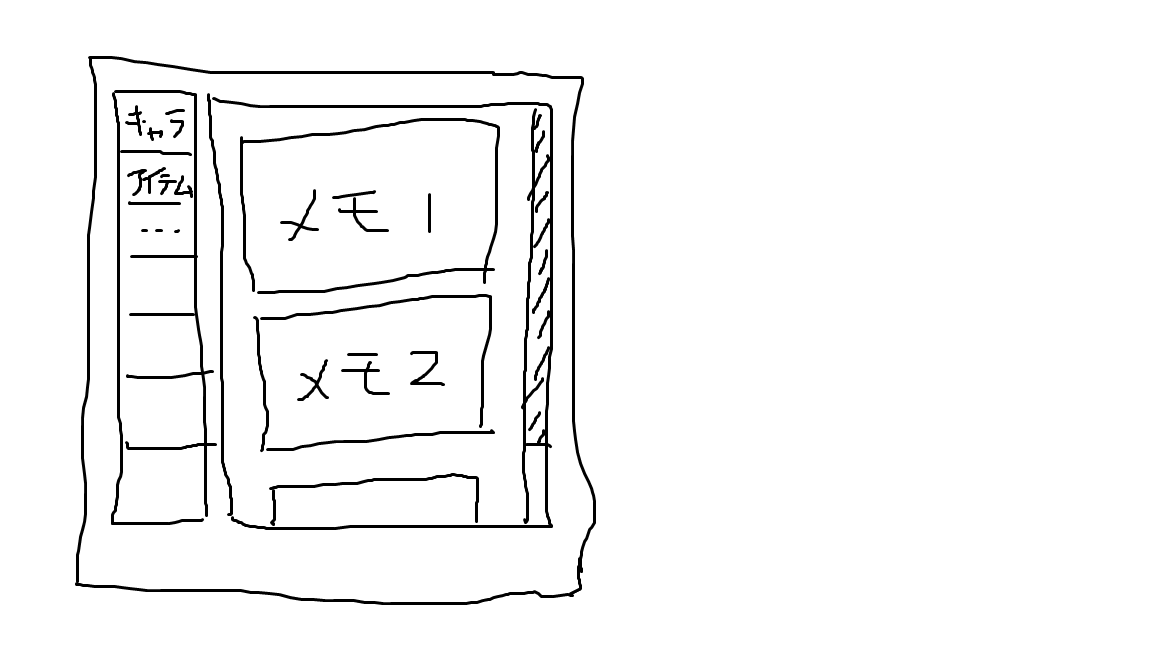 キャラ
アイテム
...
メモ1
メモ2